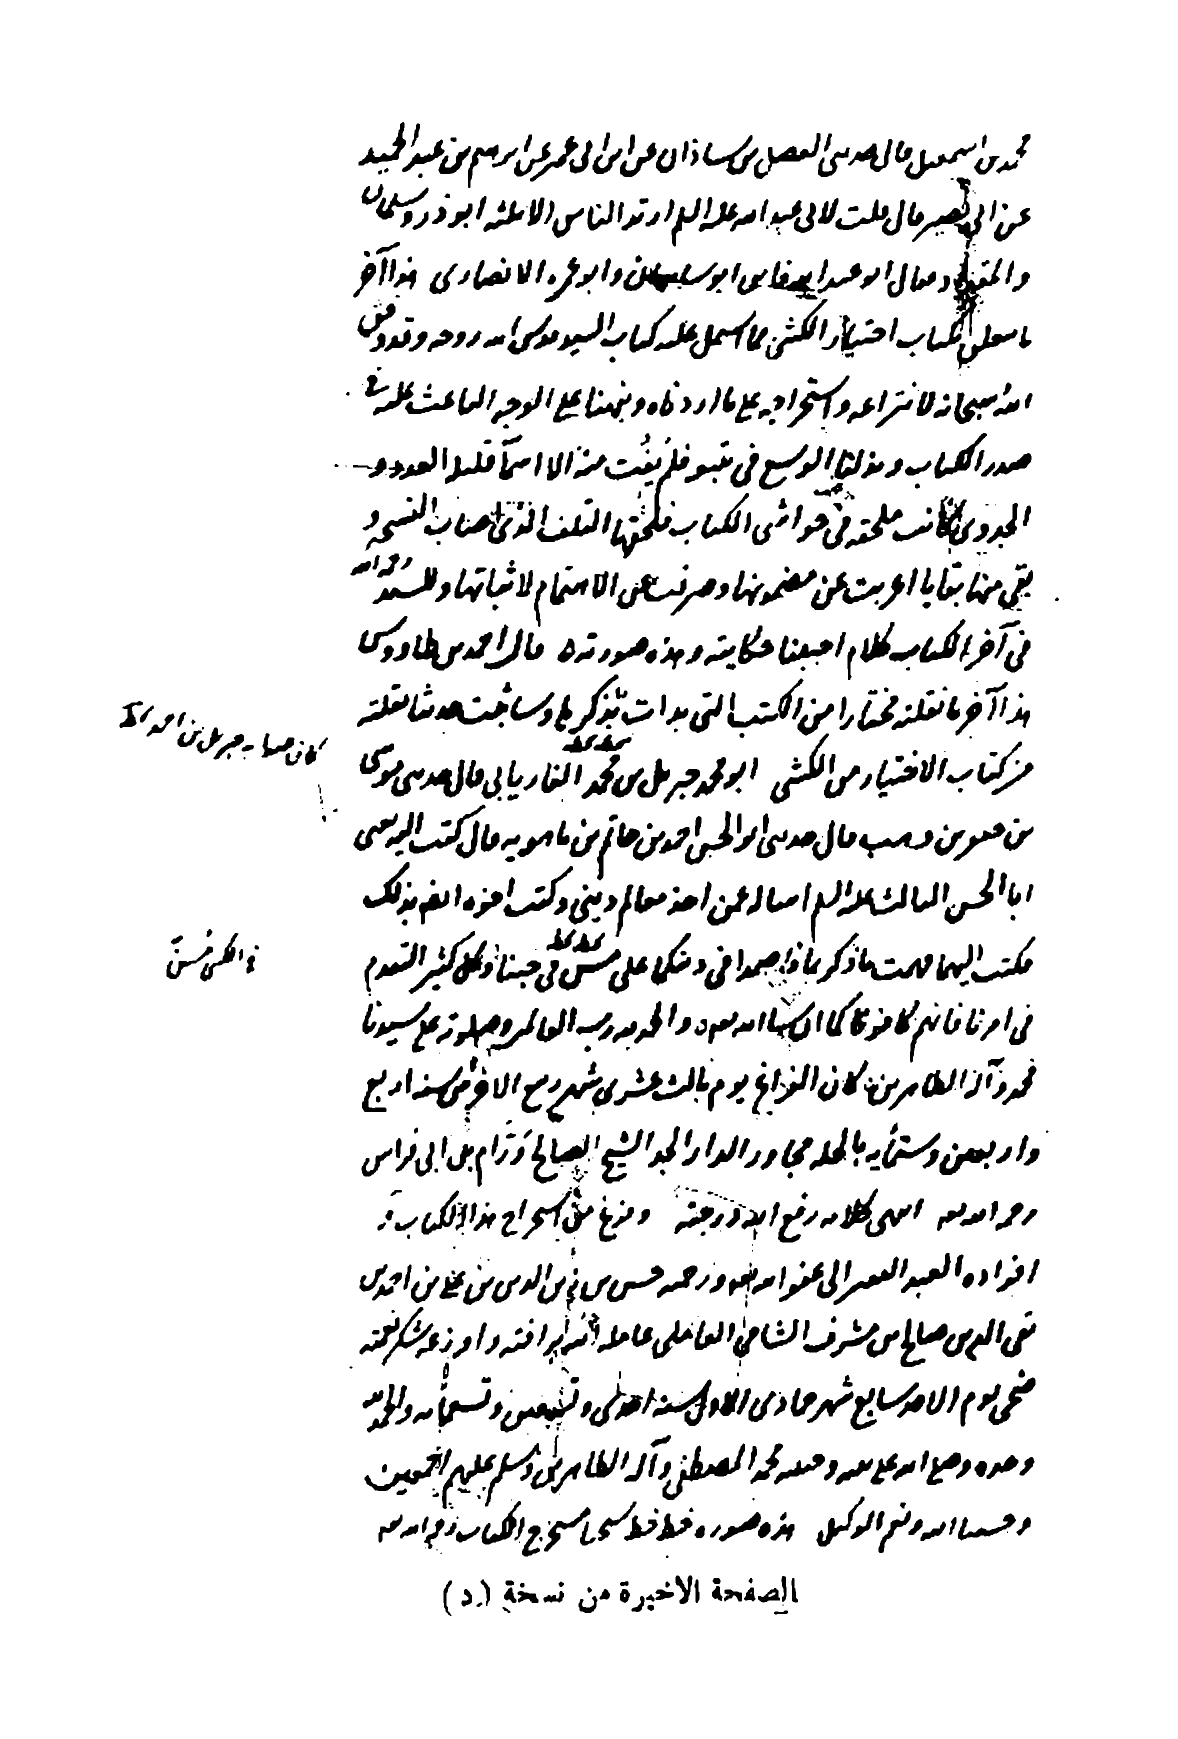 محمد بن اسمعيل قال حدثنى الفضل بن شاذان عن ابن ابى عمير عن ابرهيم بن عبد الحميد
عن ابى بصير قال قلت لابى عبد الله عليه السلم ارتد الناس الا ثلثه ابو ذر وسلمان
والمقداد فقال ابو عبد الله فاين ابو ساسان وابو عمره الانصارى هذا آخر
ما تعلق بكتاب اختيار الكشى مما اشتمل عليه كتاب السيد قدس الله روحه وقد وفق
الله سبحانه لانتزاعه واستخراجه على ما اردناه ونبهنا على الوجه الباعث عليه فى
صدر الكتاب وبذلنا الوسع فى تتبعه فلم يفت منه الا اسمآ قليله العدد و
الجدوى كانت ملحقه فى حواشى الكتاب فلحقها التلف الذى اصاب النسخه و
بقى منها بقايا اعربت عن مضمونها وصرفت عن الاهتمام لاثباتها وللسيد رحمه الله
فى آخر الكتاب كلام احببنا حكايته وهذه صورته قال احمد بن طاووس
هذا آخر ما نقلته مختارا من الكتب التى بدات بذكرها وسأثبت حديثا نقلته
من كتاب الاختيار من الكشى ابو محمد جبريل بن محمد الفاريابى قال حدثنى موسى
كان صوابه جبريل بن احمد
بن جعفر بن وهب قال حدثنى ابو الحسن احمد بن حاتم بن ماهويه قال كتبت اليه يعنى
ابا الحسن الثالث عليه السلم اساله عمن اخذ معالم دينى وكتب اخوه ايضا بذلك
فكتب اليهما فهمت ما ذكرتما فاصمدا فى دينكما على مسن فى حبنا وكل كثير القدم
فى الكشى مسن
فى امرنا فانهم كافوكما ان شا الله تعه والحمد لله رب العالمين وصلوته على سيدنا
محمد وآله الطاهرين كان الفراغ يوم ثالث عشرى شهر ربيع الاخر من سنه اربع
واربعين وستمأيه بالحله مجاور الدار الجد الشيخ الصالح ورام بن ابى فراس
رحمه الله تعه انتهى كلامه رفع الله درجته وفرغ من استخراج هذا الكتاب و
افراده العبد الفقير الى عفو الله تعه ورحمته حسن بن زين الدين بن على بن احمد بن
تقى الدين صالح بن مشرف الشامى العاملى عامله الله برافته واوزعه شكر نعمته
ضحى يوم الاحد سابع شهر جمادى الاولى سنه احدى وتسعين وتسعمأيه والحمد لله
وحده وصلى الله على محمد المصطفى وآله الطاهرين وسلم عليهم اجمعين
وحسبنا الله ونعم الوكيل هذه صوره خط شيخنا مستخرج الكتاب رحمه الله تعه
الصفحة الاخيرة من نسخة (د)